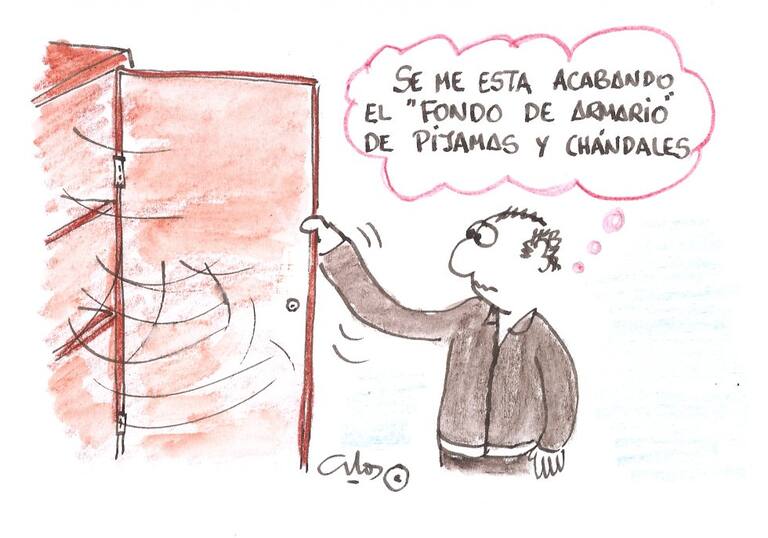 SE ME ESTA ACABANDO
EL "FONDO DE ARMARIO"
DE PIJAMAS Y CHÁNDALES